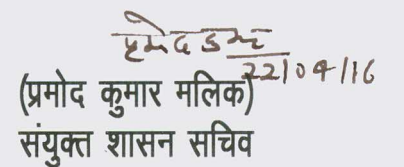 22/04/16
(प्रमोद कुमार मलिक)
संयुक्त शासन सचिव